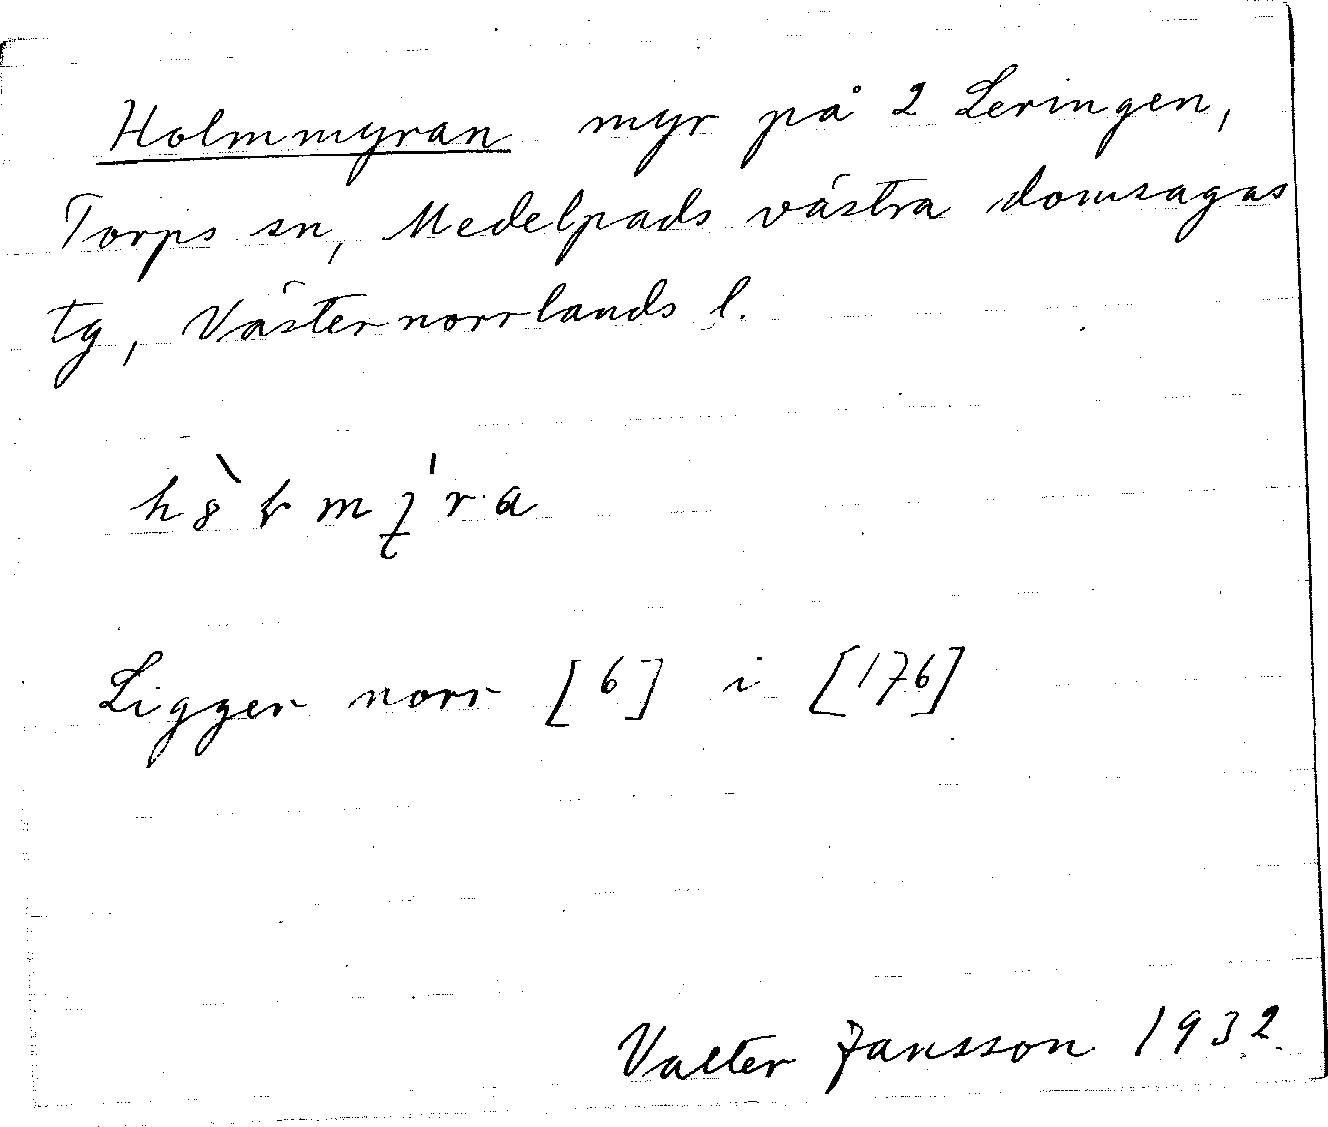 Holmmyran myr på 2 Leringen,
Torps sn, Medelpads västra domsagas
tg, Västernorrlands l.
Ligger norr [6] i [176]
Valter Jansson 1932